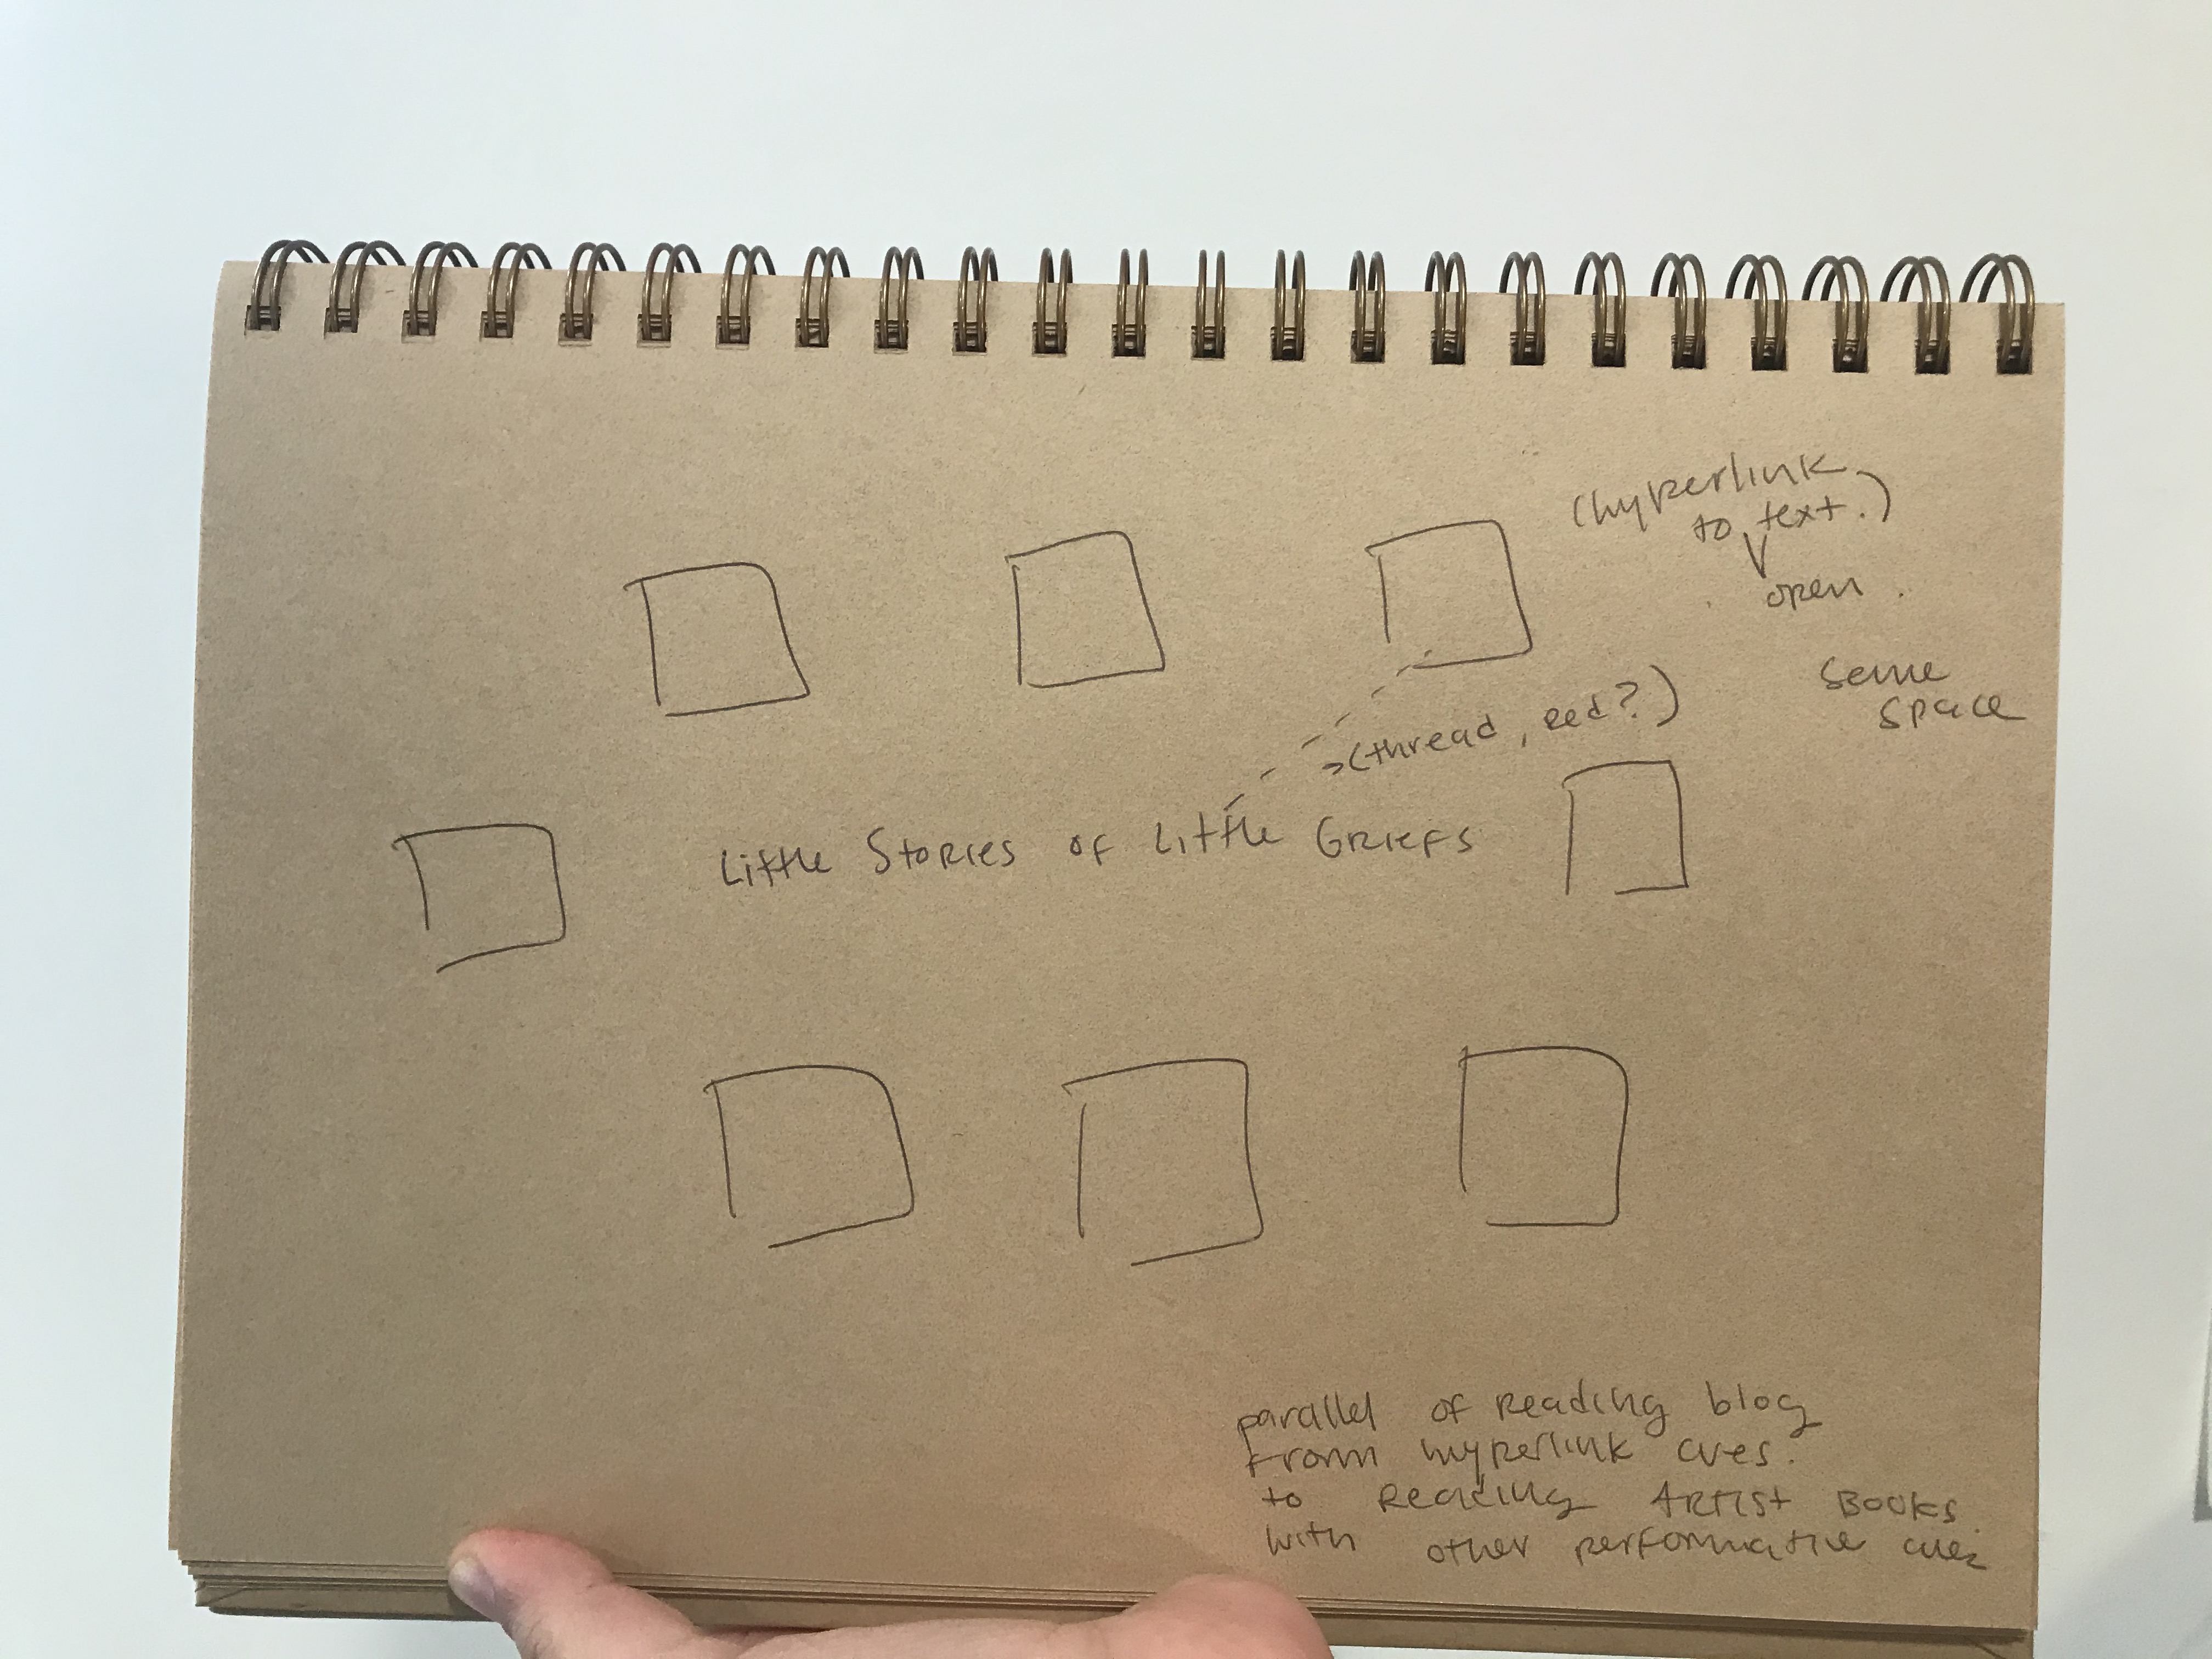 (hyperlink
to text.)
open.
same
space
(thread, red?)
Little Stories of Little Griefs
parallel of reading blog
from hyperlink cues.
to reading Artist Books.
with other performative cues